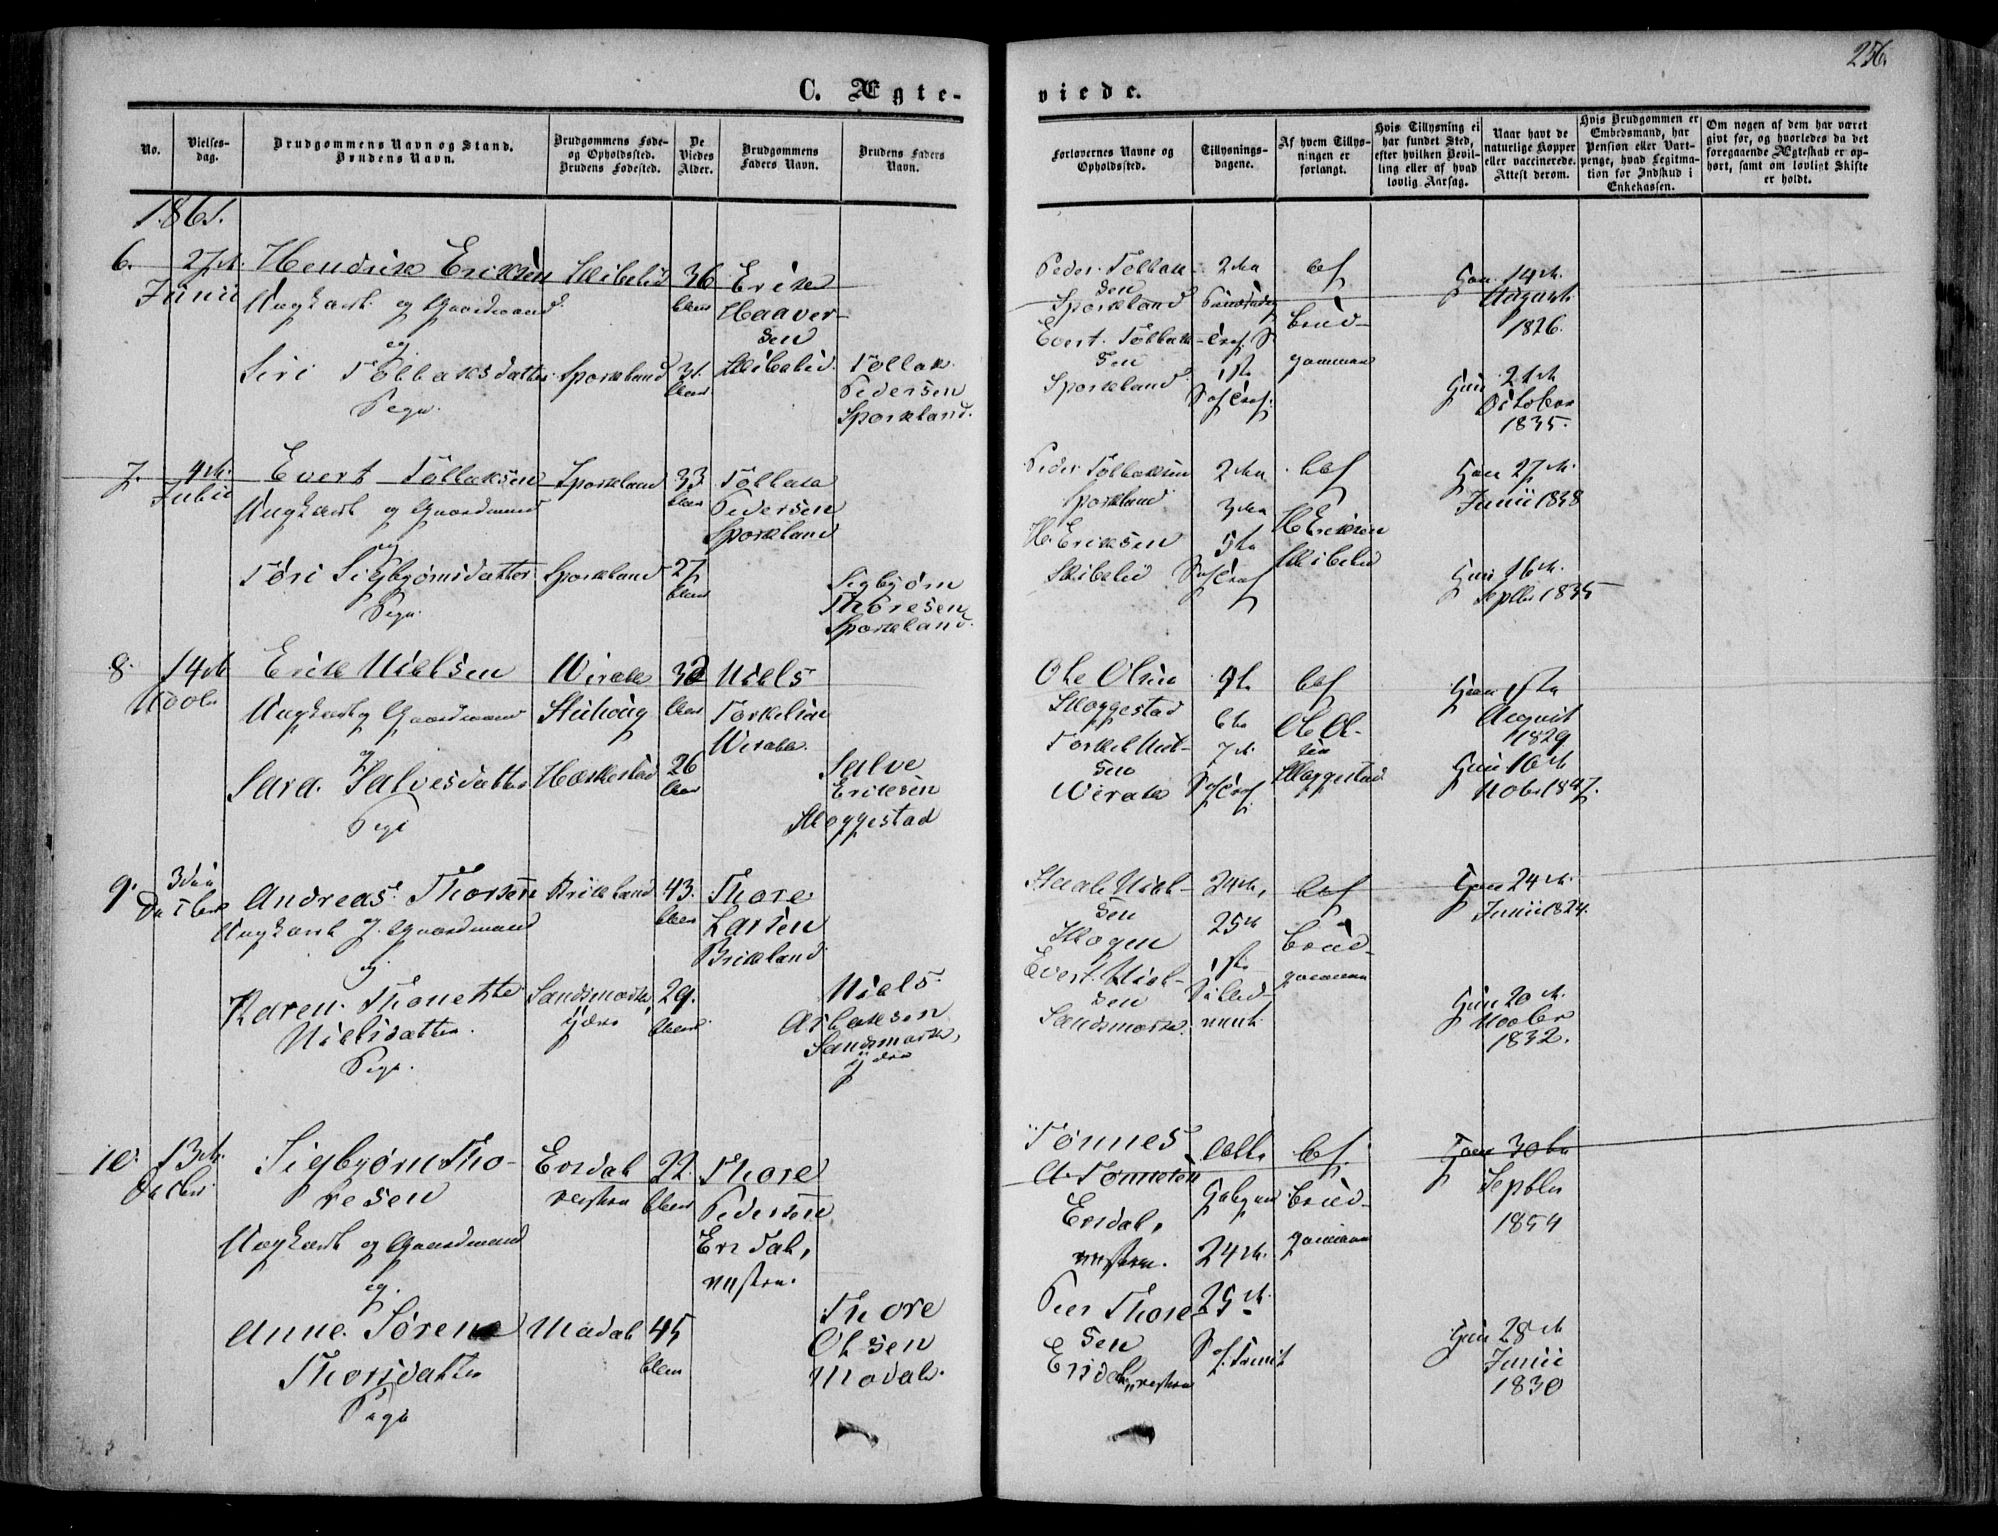 256.
C. Ægte-
viede.
No.
Vielses-
dag.
Brudgommens Navn og Stand.
Brudens Navn.
Brudgommens Føde-
og Opholdssted.
Brudens Fødested.
De
Viedes
Alder.
Brudgommens
Faders Navn.
Brudens Faders
Navn.
Forlovernes Navne og
Opholdssted.
Tillysnings-
dagene.
Af hvem Tillys-
ningen er
forlangt.
Hvis Tillysning ei
har fundet Sted,
efter hvilken Bevil-
ling eller af hvad
lovlig Aarsag.
Naar havt de
naturlige Kopper
eller vaccinerede.
Attest derom.
Hvis Brudgommen er
Embedsmand, har
Pension eller Vart-
penge, hvad Legitima-
tion for Indskud i
Enkekassen.
Om nogen af dem har været
gift før, og hvorledes da det
foregaaende Ægteskab er op-
hørt, samt om lovligt Skifte
er holdt.
1861.
6.
27de
Junii
Hendrik Eriksen
Ungkarl og Gaardmand
og
Siri Tollaksdatter
Pige
Skibelid
Sporkland
36
31
Erik
Haaver-
sen
Skibelid.
Tollak
Pedersen
Sporkland.
Peder Tollak-
sen
Sporkland
Evert Tollak-
sen
Sporkland
2den
1ste
Brud-
gommen
Han 14de
August
1826.
Hun 21de
October
1835.
7.
4de
Julii
Evert Tollaksen
Ungkarl og Gaardmand
og
Tori Sigbjørnsdatter
Pige
Sporkland
Sporkland
33
27
Tollak
Pedersen
Sporkland
Sigbjørn
Thoresen
Sporkland.
Peder Tollaksen
Sporkland
H. Eriksen
Skibelid
2den
3die
5te
H Eriksen
Skibelid
Han 27de
Junii 1838
Hun 16de
Septbr 1835
8.
14de
Novbr
Erik Nielsen
Ungkarl og Gaardmand
og
Sara Salvesdatter
Pige
Wirak
Hæskestad
32
26
Niels
Torkelsen
Wirak.
Salve
Eriksen
Skoggestad
Ole Olsen
Skoggestad
Torkel Niel-
sen
Wirak
6te
7de
Ole Ol-
sen
Skoggestad
Han 1ste
August
1829
Hun 16de
Nobr 1847.
9.
3die
Decber
Andreas Thorsen
Ungkarl og Gaardmand
og
Karen Thonette
Nielsdatter
Pige.
Brikland
Sandsmark
43.
29.
Thore
Larsen
Brikland
Niels
Aslaksen
Sandsmark,
Niel-
sen
Skogen
Evert Niel-
sen
Sandsmark.
24de,
25de
1ste
Brud-
gommen
Han 24de
Junii 1824.
Hun 20de
Novbr
1832.
10.
13de
Decbr
Sigbjørn Tho-
resen
Ungkarl og Gaardmand
og
Anne Sørene
Thorsdatter
Pige
Eersdal
vestre
Modal
22.
45
Thore
Pedersen
Eersdal,
vestre.
Thore
Olsen
Modal.
Tønnes
A. Tønnesen
Eersdal,
vestre.
Peer Thore-
sen
Eersdal vestre
24de.
25de
Brud-
gommen
Han 30te
Septbr
1854
Hun 28de
Junii
1830